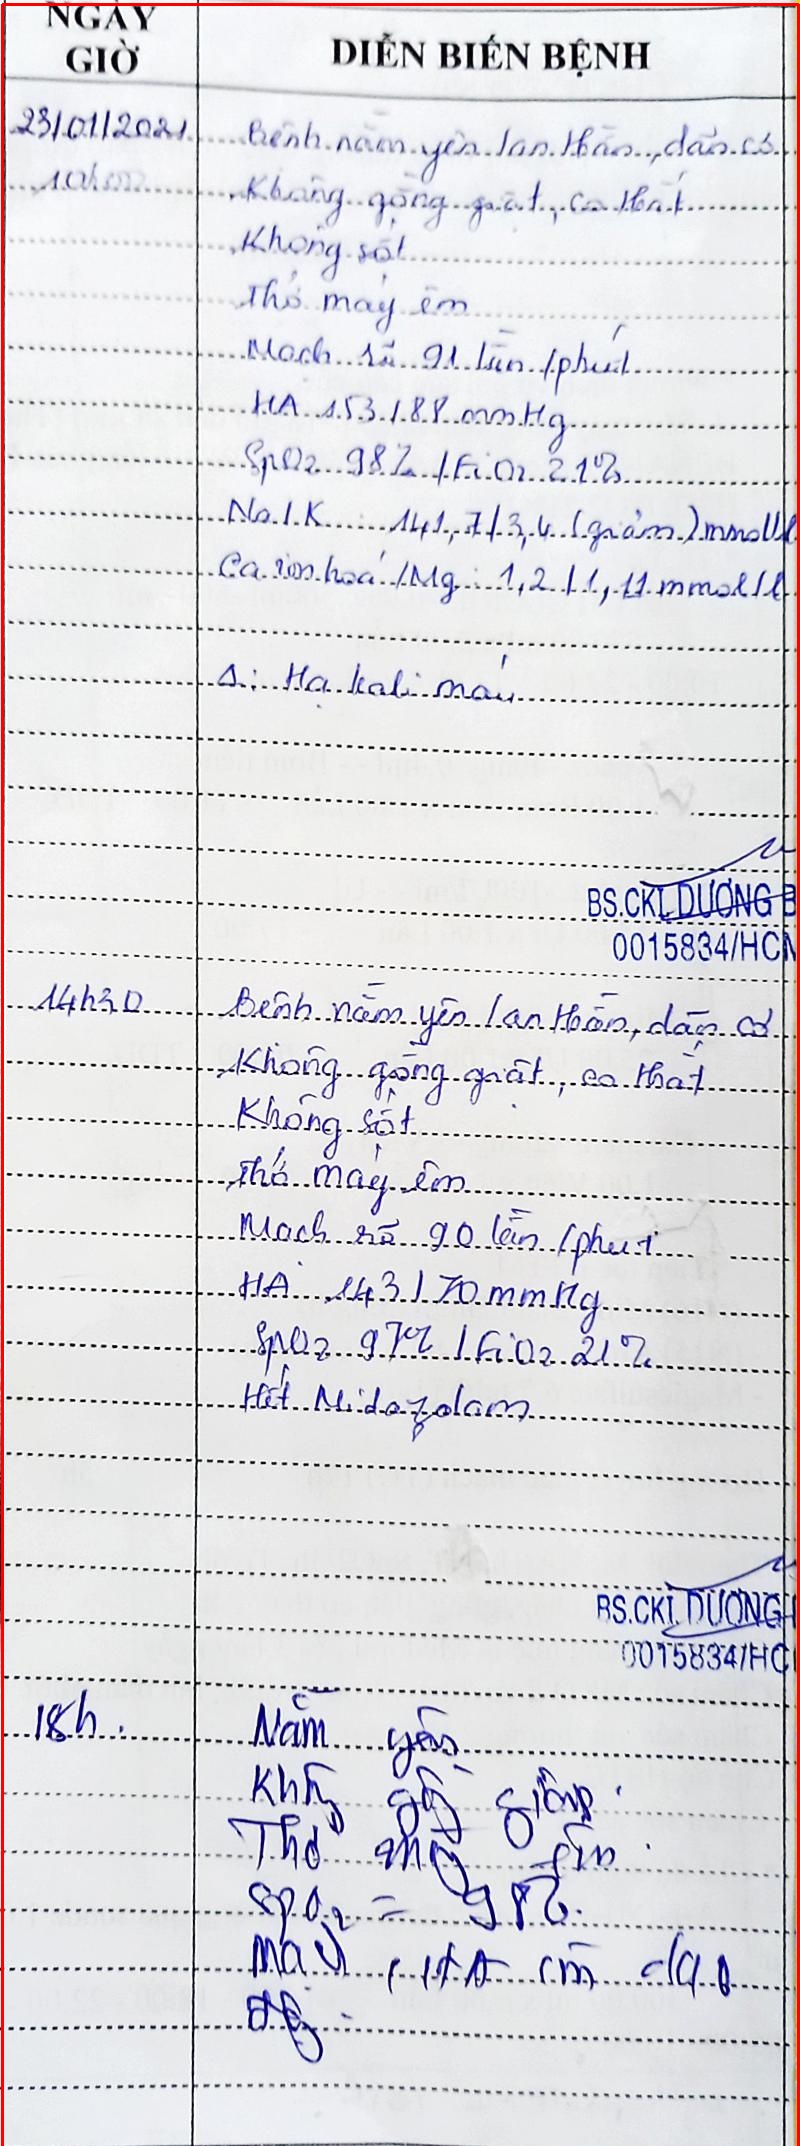 NGÀY
GIỜ
DIỄN BIẾN BỆNH
23/01/2021
Bệnh nằm yên / an thần, dãn cơ
10h00
Không gồng giật, co thắt
Không sốt
Thở máy êm
Mạch rõ 91 lần /phút
HA 153/88 mmHg
SpO2 98% / FiO2 21%
Na/K : 141,7/3,4 (giảm) mmol/l
Ca ion hoá /Mg : 1,2 / 1,11 mmol/l
Δ: Hạ kali máu
BS.CKI. DƯƠNG B
0015834/HCM
14h30
Bệnh nằm yên / an thần, dãn cơ
Không gồng giật, co thắt
Không sốt
Thở máy êm
Mạch rõ 90 lần /phút
HA 143/70 mmHg
SpO2 97% / FiO2 21%
Hết Midazolam
BS.CKI. DƯƠNG
0015834/HC
18h.
Nằm yên
Không gồng
Thở máy êm.
SpO2 = 98%.
Mạch, HA còn dao
động.